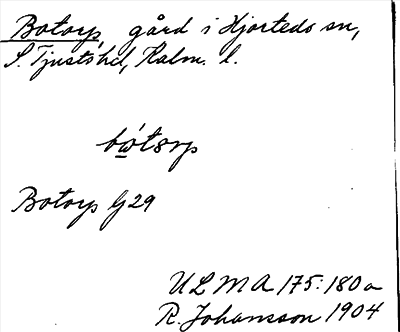 Botorp, gård i Hjorteds sn,
S. Tjusts hd, Kalm. l.
bótorp
Botorp Gj 29
ULMA 175:180a
R. Johansson 1904